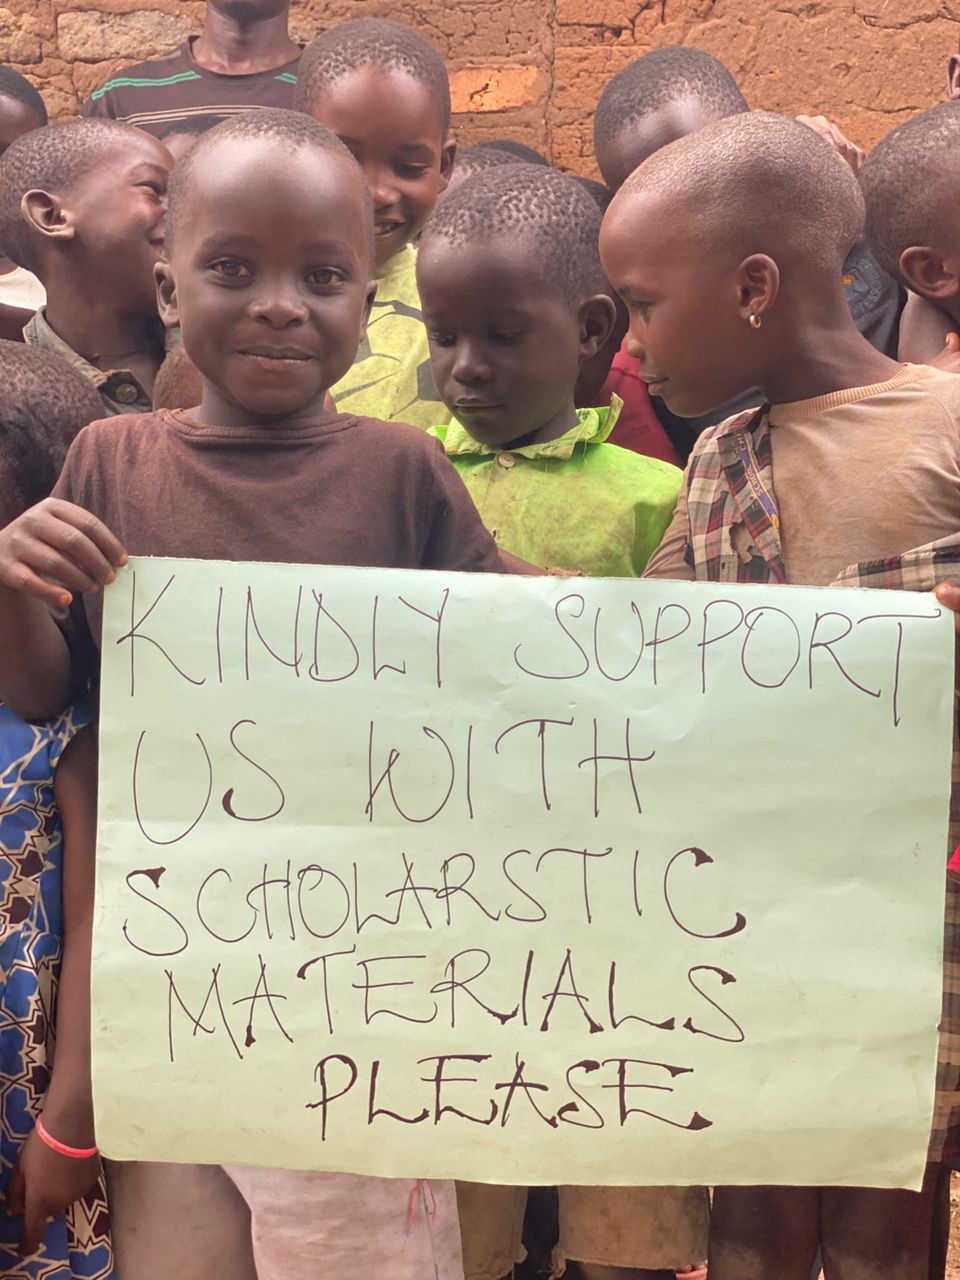 KINDLY SUPPORT
US WITH
SCHOLARSTIC
MATERIALS
PLEASE